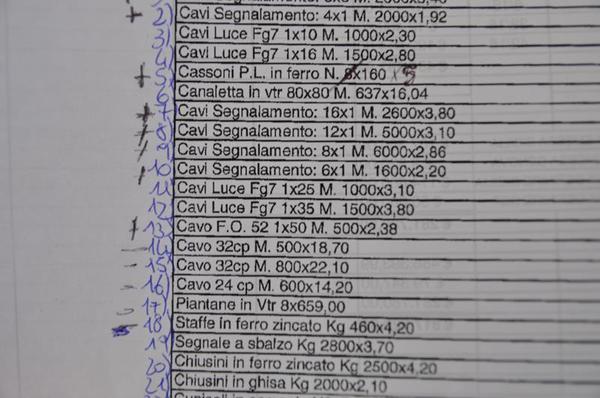 2) Cavi Segnalamento: 4x1 M. 2000x1,92
3) Cavi Luce Fg7 1x10 M. 1000x2,30
4) Cavi Luce Fg7 1x16 M. 1500x2,80
5) Cassoni P.L. in ferro N. 8x160 x5
6) Canaletta in vtr 80x80 M. 637x16,04
7) Cavi Segnalamento: 16x1 M. 2600x3,80
8) Cavi Segnalamento: 12x1 M. 5000x3,10
9) Cavi Segnalamento: 8x1 M. 6000x2,86
10) Cavi Segnalamento: 6x1 M. 1600x2,20
11) Cavi Luce Fg7 1x25 M. 1000x3,10
12) Cavi Luce Fg7 1x35 M. 1500x3,80
13) Cavo F.O. 52 1x50 M. 500x2,38
14) Cavo 32cp M. 500x18,70
15) Cavo 32cp M. 800x22,10
16) Cavo 24 cp M. 600x14,20
17) Piantane in Vtr 8x659,00
18) Staffe in ferro zincato Kg 460x4,20
19) Segnale a sbalzo Kg 2800x3,70
20) Chiusini in ferro zincato Kg 2500x4,20
21) Chiusini in ghisa Kg 2000x2,10